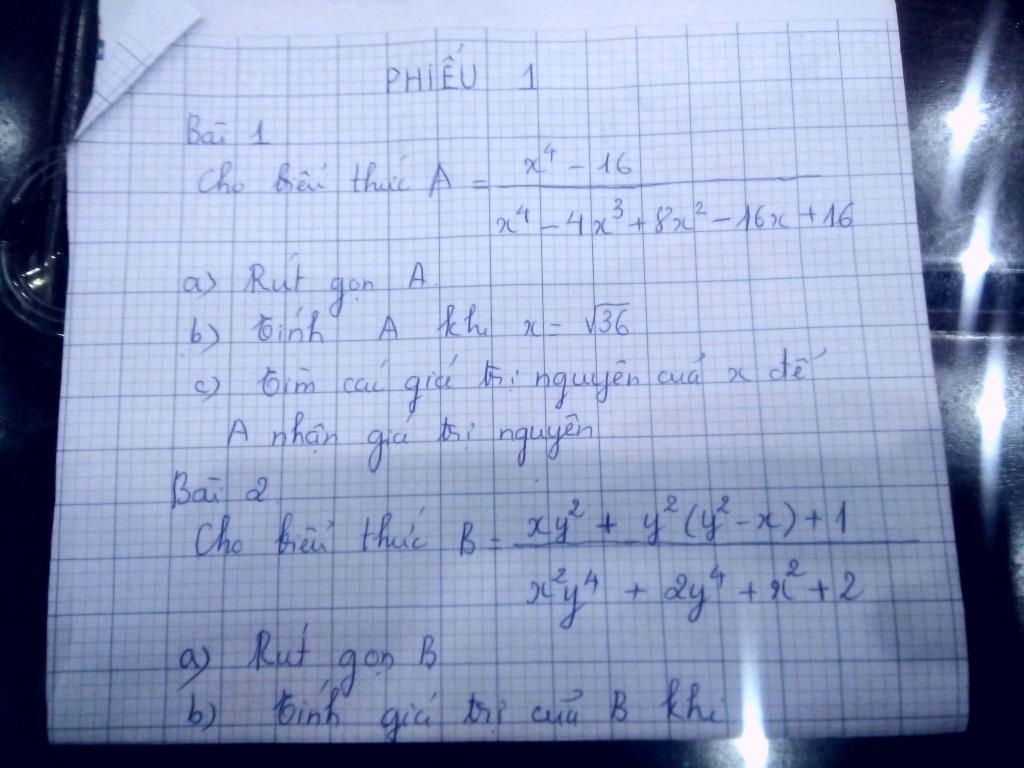 PHIẾU 1
Bài 1
Cho biểu thức A = (x⁴ - 16) / (x⁴ - 4x³ + 8x² - 16x + 16)
a) Rút gọn A
b) tính A khi x = √36
c) tìm các giá trị nguyên của x để
A nhận giá trị nguyên
Bài 2
Cho biểu thức B = (xy² + y²(y² - x) + 1) / (x²y⁴ + 2y⁴ + x² + 2)
a) Rút gọn B
b) tính giá trị của B khi